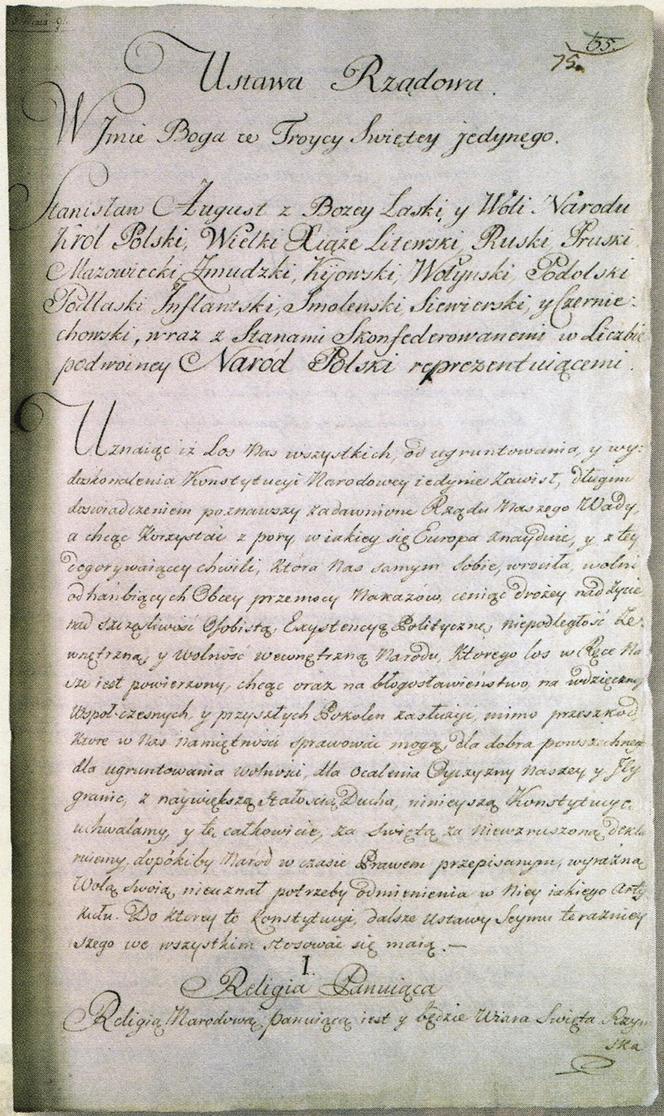 65.
75.
Ustawa Rządowa.
W Jmie Boga w Troycy Swiętey jedynego.
Stanisław August z Bozey Łaski, y Woli Narodu
Krol Polski, Wielki Xiąże Litewski, Ruski, Pruski,
Mazowiecki, Zmudzki, Kijowski, Wołynski, Podolski
Podlaski, Inflantski, Smolenski, Siewierski, y Czernie-
chowski, wraz z Stanami Skonfederowanemi w Liczbie
podwoiney Narod Polski reprezentuiącemi.
Uznaiąc iż Los Nas wszystkich, od ugruntowania, y wy-
doskonalenia Konstytucyi Narodowey iedynie zawisł, długim
doswiadczeniem poznawszy zadawnione Rządu Naszego Wady,
a chcąc korzystać z pory w iakiey się Europa znayduie, y z tey
dogorywaiącey chwili, która Nas samym Sobie, wrociła, wolni
od hańbiących Obcey przemocy Nakazow, ceniąc drożey nad życie
nad szczęśliwość Osobistą, Exystencyą Polityczną, niepodległość ze-
wnętrzną, y wolność wewnętrzną Narodu, ktorego los w Ręce Na
sze iest powierzony, chcąc oraz na błogosławieństwo, na wdzięczność
Wspołczesnych, y przyszłych Pokoleń zasłużyć, mimo przeszkod
które w Nas namiętności sprawować mogą dla dobra powszechnego
dla ugruntowania wolności, dla ocalenia Oyczyzny Naszey y Jey
granic, z naywiększą stałością Ducha, ninieyszą Konstytucyę
uchwalamy, y tę całkowicie, za świętą za niewzruszoną dekla
ruiemy, dopokiby Narod w czasie Prawem przepisanym, wyraźną
Wolą swoią, nieuznał potrzeby odmienienia w Niey iakiego Arty
kułu. Do ktorey to Konstytucyi, dalsze Ustawy Seymu teraźniey
szego we wszystkim stosować się maią.—
I.
Religia Panuiąca
Religią Narodową panuiącą iest y będzie Wiara Swięta Rzym
ska